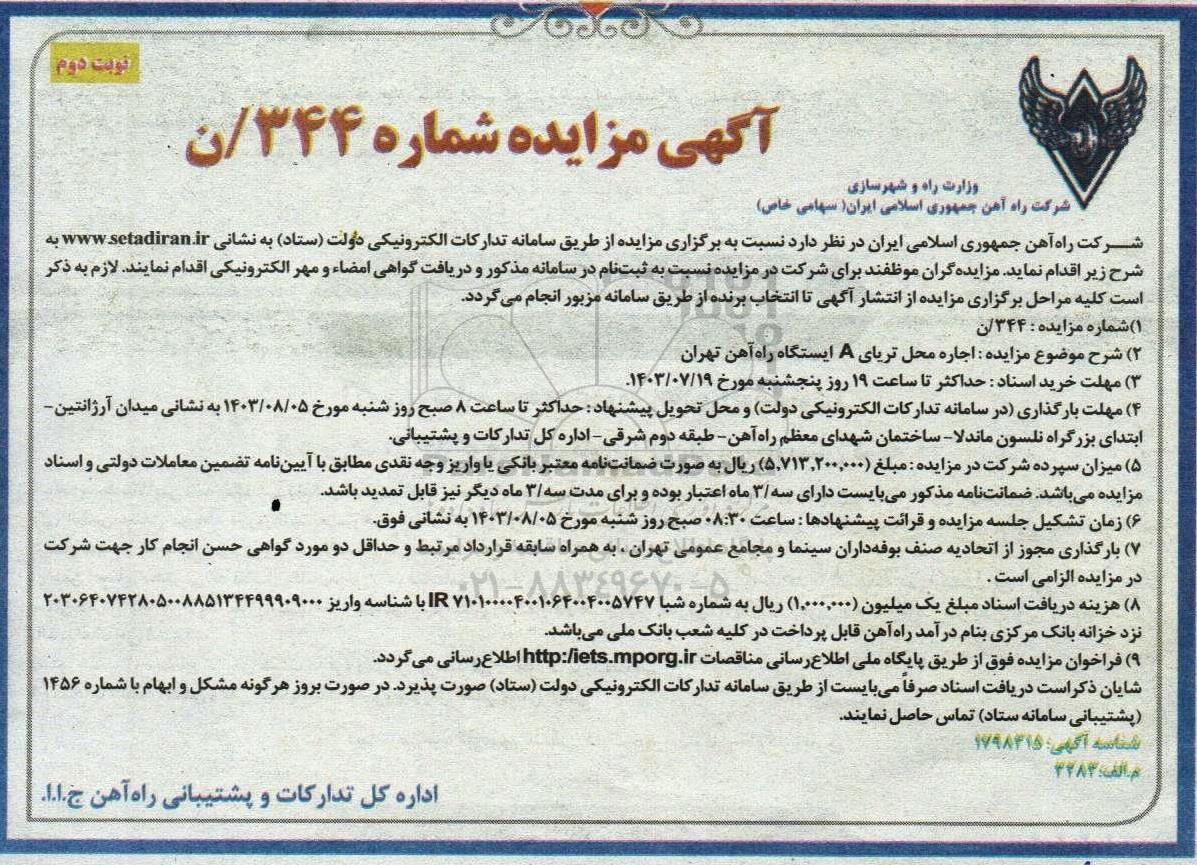 نوبت دوم
آگهی مزایده شماره ۳۴۴/ن
وزارت راه و شهرسازی
شرکت راه آهن جمهوری اسلامی ایران( سهامی خاص)
شـــرکت راه‌آهن جمهوری اسلامی ایران در نظر دارد نسبت به برگزاری مزایده از طریق سامانه تدارکات الکترونیکی دولت (ستاد) به نشانی www.setadiran.ir به
شرح زیر اقدام نماید. مزایده‌گران موظفند برای شرکت در مزایده نسبت به ثبت‌نام در سامانه مذکور و دریافت گواهی امضاء و مهر الکترونیکی اقدام نمایند. لازم به ذکر
است کلیه مراحل برگزاری مزایده از انتشار آگهی تا انتخاب برنده از طریق سامانه مزبور انجام می‌گردد.
۱)شماره مزایده : ۳۴۴/ن
۲) شرح موضوع مزایده : اجاره محل تریای A ایستگاه راه‌آهن تهران
۳) مهلت خرید اسناد : حداکثر تا ساعت ۱۹ روز پنجشنبه مورخ ۱۴۰۳/۰۷/۱۹.
۴) مهلت بارگذاری (در سامانه تدارکات الکترونیکی دولت) و محل تحویل پیشنهاد : حداکثر تا ساعت ۸ صبح روز شنبه مورخ ۱۴۰۳/۰۸/۰۵ به نشانی میدان آرژانتین-
ابتدای بزرگراه نلسون ماندلا- ساختمان شهدای معظم راه‌آهن- طبقه دوم شرقی- اداره کل تدارکات و پشتیبانی.
۵) میزان سپرده شرکت در مزایده : مبلغ (۵,۷۱۳,۲۰۰,۰۰۰) ریال به صورت ضمانت‌نامه معتبر بانکی یا واریز وجه نقدی مطابق با آیین‌نامه تضمین معاملات دولتی و اسناد
مزایده می‌باشد. ضمانت‌نامه مذکور می‌بایست دارای سه/۳ ماه اعتبار بوده و برای مدت سه/۳ ماه دیگر نیز قابل تمدید باشد.
۶) زمان تشکیل جلسه مزایده و قرائت پیشنهادها : ساعت ۰۸:۳۰ صبح روز شنبه مورخ ۱۴۰۳/۰۸/۰۵ به نشانی فوق.
۷) بارگذاری مجوز از اتحادیه صنف بوفه‌داران سینما و مجامع عمومی تهران ، به همراه سابقه قرارداد مرتبط و حداقل دو مورد گواهی حسن انجام کار جهت شرکت
در مزایده الزامی است .
۸) هزینه دریافت اسناد مبلغ یک میلیون (۱,۰۰۰,۰۰۰) ریال به شماره شبا IR ۷۱۰۱۰۰۰۰۴۰۰۱۰۶۴۰۰۴۰۰۵۷۴۷ با شناسه واریز ۲۰۳۰۶۴۰۷۴۲۸۰۵۰۰۸۸۵۱۳۴۴۹۹۹۰۹۰۰۰
نزد خزانه بانک مرکزی بنام درآمد راه‌آهن قابل پرداخت در کلیه شعب بانک ملی می‌باشد.
۹) فراخوان مزایده فوق از طریق پایگاه ملی اطلاع‌رسانی مناقصات http:/iets.mporg.ir اطلاع‌رسانی می‌گردد.
شایان ذکراست دریافت اسناد صرفاً می‌بایست از طریق سامانه تدارکات الکترونیکی دولت (ستاد) صورت پذیرد. در صورت بروز هرگونه مشکل و ابهام با شماره ۱۴۵۶
(پشتیبانی سامانه ستاد) تماس حاصل نمایند.
شناسه آگهی: ۱۷۹۸۳۱۵
م.الف: ۲۲۸۳
اداره کل تدارکات و پشتیبانی راه‌آهن ج.ا.ا.
۰۲۱-۸۸۳۴۹۶۷۰-۵